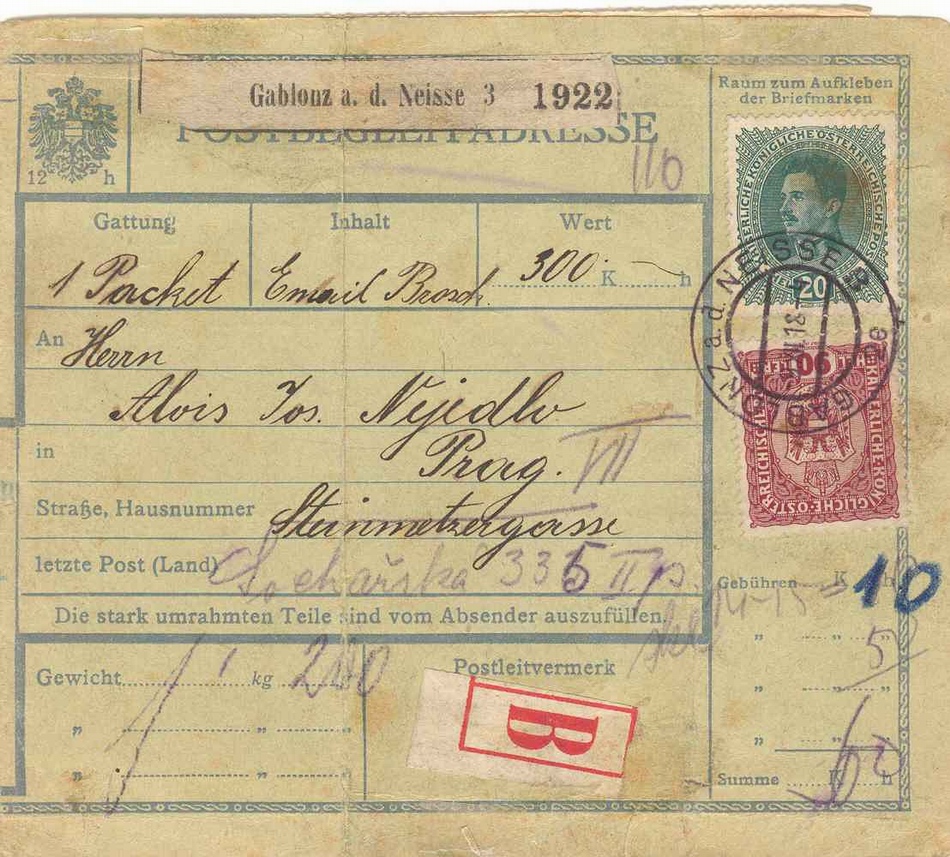 Gablonz a. d. Neisse 3 1922
POSTBEGLEITADRESSE
12 h
Raum zum Aufkleben
der Briefmarken
110
Gattung Inhalt Wert
1 Packet Email Brosch. 300 K h
An Herrn
Alois Jos. Nejedlv
in Prag. VII
Straße, Hausnummer Steinmetzergasse
letzte Post (Land) Sochařska 335 II p.
Die stark umrahmten Teile sind vom Absender auszufüllen.
Gewicht kg 200
" "
" "
Postleitvermerk
B
20
90
KAISERLICHE-KÖNIGLICHE-ÖSTERREICHISCHE
GABLONZ a. d. NEISSE
Gebühren K h 10
" " 5
" "
" "
Summe K h